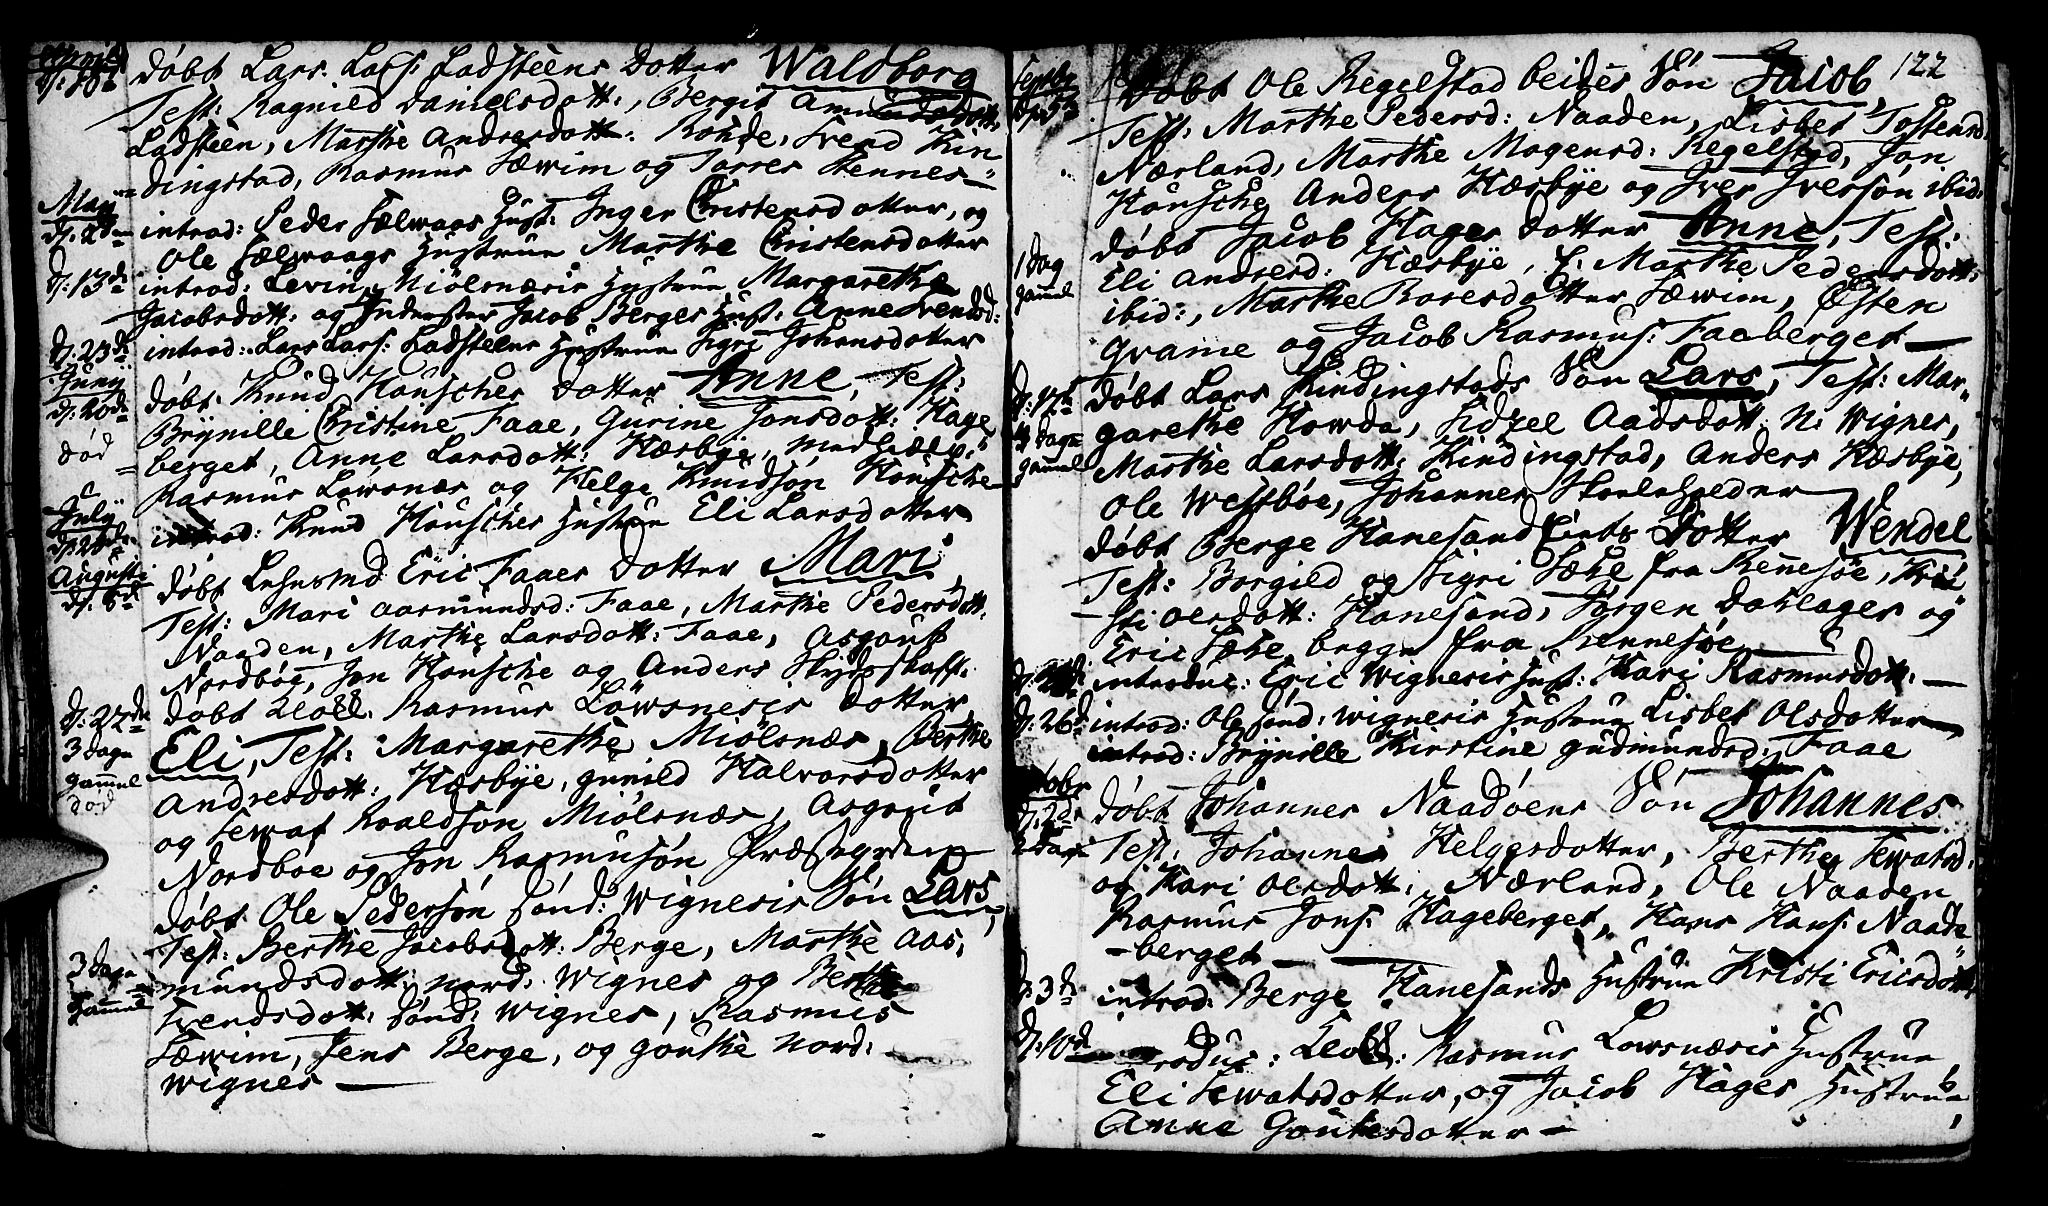 April
d: 18d døbt Lars Lars: Ladsteens Dotter Waldborg
Test: Ragnild Danielsdott:, Bergit Amundsdott:
Ladsteen, Marthe Andersdott: Rohde, Svend Kin
dingstad, Rasmus Sæwim og Torres Hennes
Maij
d: 2den introd: Peder Sælwaags Hust: Inger Christensdotter, og
Ole Sælwaags Hustrue Marthe Christensdotter
d: 13d introd: Levin Miølsnæsis Hustrue Margarethe
Jacobsdott: og Inderster Jacob Berges Hust: Anne Svendsd:
d: 23d introd: Lars Lars: Ladsteens Hustrue Sigri Johansdotter
Junij
d: 20d døbt Knud Hausches Dotter Anne, Test:
Brynille Christine Faae, Gurine Jonsdott: Hage
død berget, Anne Larsdott: Hæsbye,
Rasmus Løwsnæs og Helge Knudsøn Hausche
July
d: 25de introd: Knud Hausches Hustrue Eli Larsdotter
Augusti
d: 8d døbt Lehnsmd Eric Faaes Dotter Mari
Test: Mari Aasmundsd: Faae, Marthe Pedersdott:
Naaden, Marthe Larsdott: Faae, Asgout
Nordbøe, Jon Hausche og Anders Skydsskaff.
d: 22de døbt Rasmus Løwsnesis Dotter
3 dage Eli, Test: Margarethe Miølsnæs, Berthe
gammel Andresdott: Hæsbye, gunild Halvorsdotter
død og Sewat Roaldsøn Miølsnæs, Asgout
Nordbøe og Jon Rasmusøn Præstegrden
døbt Ole Pedersøn Sønd: Wignesis Søn Lars,
Test: Berthe Jacobsdott: Berge, Marthe Aas,
3 dage mundsdott: Nord: Wignes og Berthe
gammel Svendsdott: Sønd: Wignes, Rasmus
Sæwim, Jens Berge, og Goutke Nord:
Wignes
122
Septbr
d: 5d Døbt Ole Regelstad beides Søn Jacob,
Test: Marthe Pedersd: Naaden, Lisbet Tostensd:
Nærland, Marthe Mogensd: Regelstad, Jon
Hausche, Anders Hæsbye og Iver Iversøn ibid:
døbt Jacob Hages Dotter Anne, Test:
1 dag Eli Andersd: Hæsbye, Marthe Pedersdott:
gammel ibid:, Marthe Roresdotter Sæwim, Østen
Grame og Jacob Rasmus: Faaberget
d: 12d døbt Lars Kindingstads Søn Lars, Test: Mar
4 dage garethe Howda, Sidzel Aadsdott: N: Wignes,
gammel Marthe Larsdott: Kindingstad, Anders Hæsbye,
Ole Westbøe, Johannes Skoleholder
døbt Berge Hanesand Dotter Wendel
Test: Borgild og Sigri Søche fra Rennesøe, Kri
sti Olesdott: Hanesand, Jørgen Dahlager og
Eric Søche begge fra Rennesøe
introduc: Eric Wignesis Hust: Kari Rasmusdott:
d: 26d introd: Ole Sønd: Wignesis Hustrue Lisbet Olsdotter
introd: Brynille Kirstine gudmundsd: Faae
Octobr
d: 2d døbt Johannes Naadøens Søn Johannes
2 dage Test: Johanne Helgesdotter, Berthe Sewatsd:
og Kari Olesdott: Nærland, Ole Naaden
Rasmus Jons: Hageberget, Hans Hans: Naade
berget
d: 3d introd: Berge Hanesands Hustrue Kristi Ericsdott:
d: 10d introduc: Rasmus Lowsnæsis Hustrue
Eli Sewatsdotter, og Jacob Hages Hustrue
Anne Goutesdotter